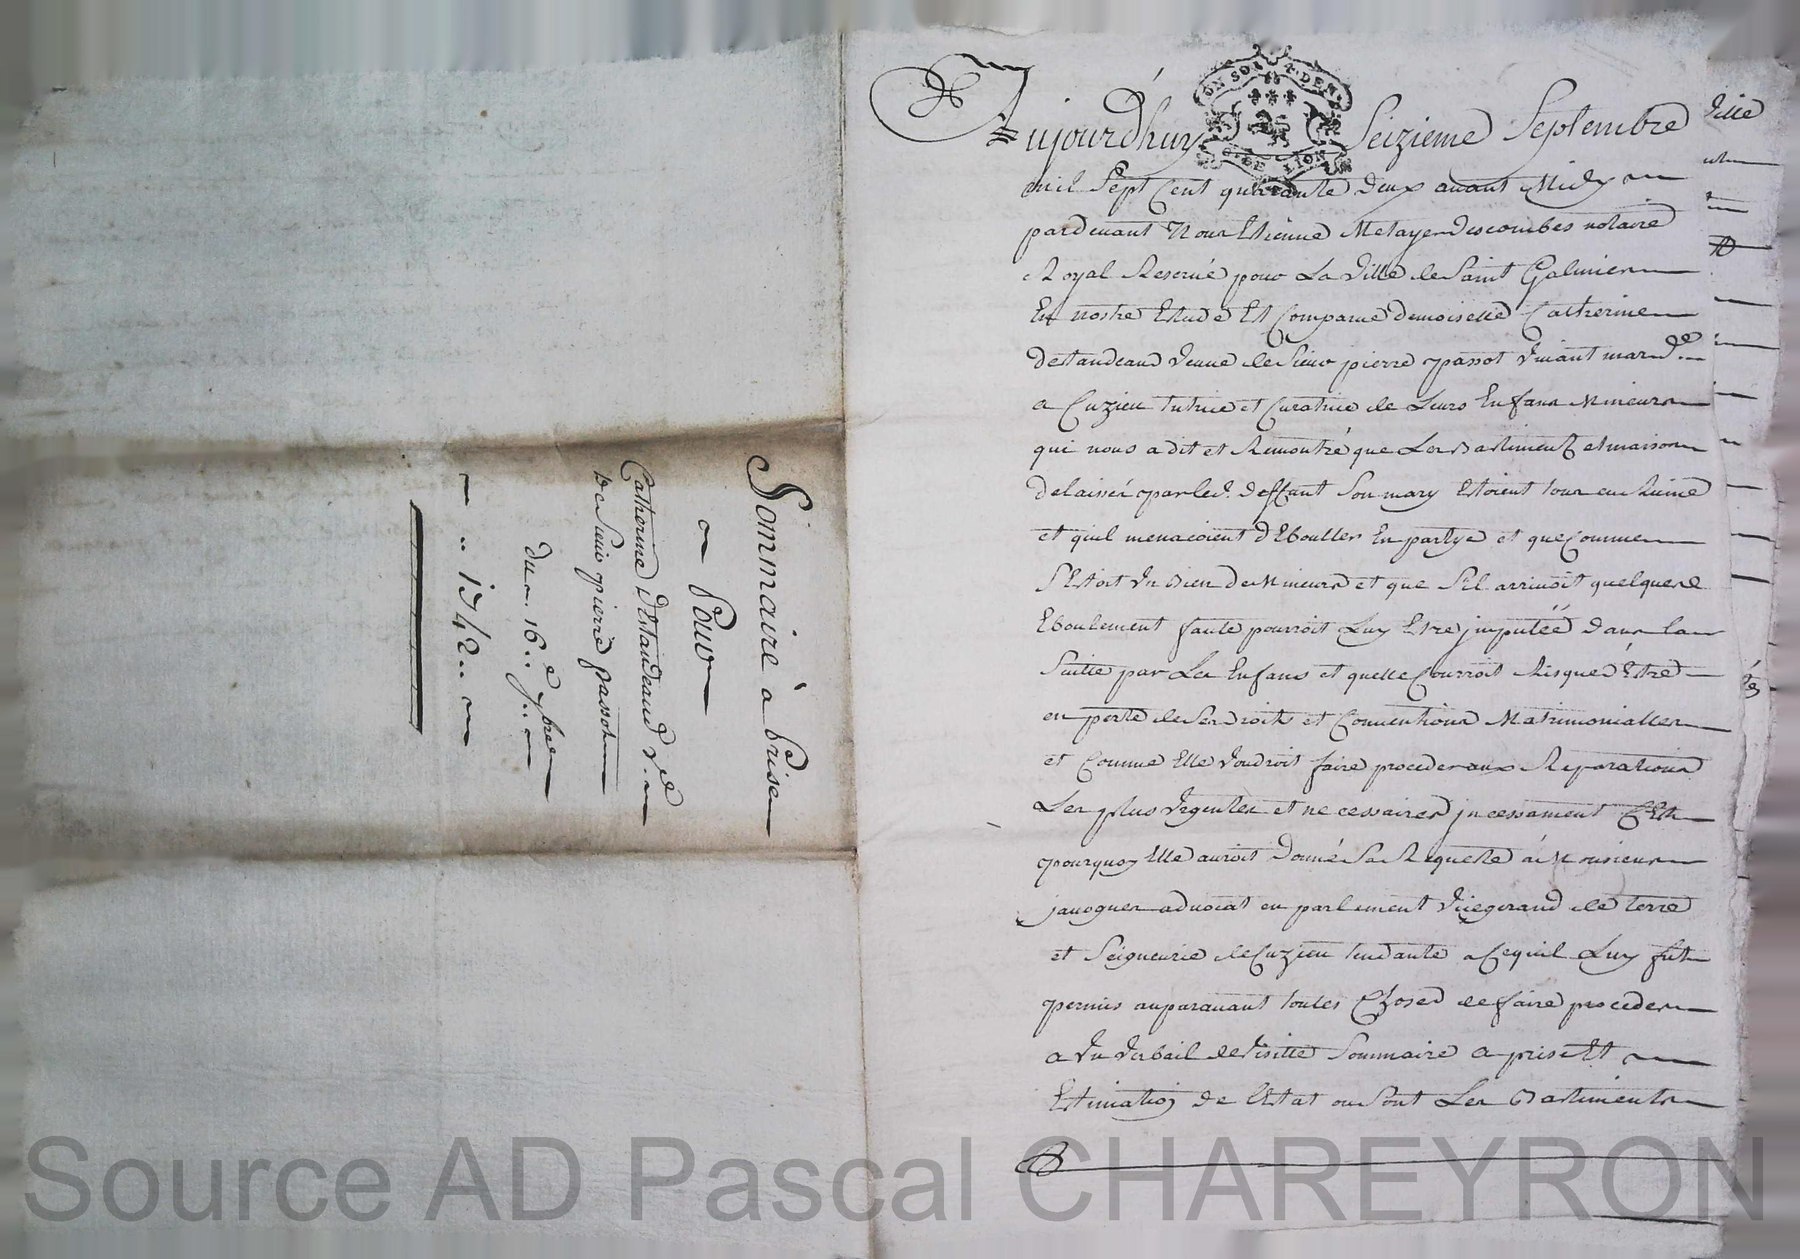 Sommaire à Prise
Pour
Catherine Destandeaud v.e
De Sieur pierre passot
du 16.e 7bre
1742
GEN SOL 4 DEN
G. DE LION
Aujourd'huy Seizieme Septembre
mil Sept Cent quarante deux avant Midy
pardevant Nous Estienne Metayer Descombes notaire
Royal Reservé pour La Ville de Saint Galmier
En nostre Etude Est Comparue demoiselle Catherine
destandeaud veuve de Sieur pierre passot vivant marnd.
a Cuzieu tutrice et Curatrice de Leurs Enfans Mineurs
qui nous a dit et Remontré que Les Bastiments et maison
delaissés par led. deffunt Son mary Estoient tous en Ruine
et quil menacoient d'Eboulles En partye et que Comme
S'Estoit du Bien de Mineurs et que Sil arrivoit quelques
Eboulement faute pourroit Luy Estre imputée dans la
Suitte par Les Enfans et quelle Courroit Risque d'Estre
en perte de Ses Droits et Conventions Matrimonialles
et Comme Elle voudroit faire proceder aux Reparations
Les plus Urgentes et necessaires incessament C'Est
pourquoy Elle auroit Donné Sa Requeste à Monsieur
javogues advocat en parlement Vicegerand de la terre
et Seigneurie de Cuzieu tendante a Cequil Luy fut
permis auparavant toutes Choses de faire proceder
a Un Verbail de Visitte Sommaire a prise Et
Estimation de l'Estat ou Sont Les Bastiments
Source AD Pascal CHAREYRON